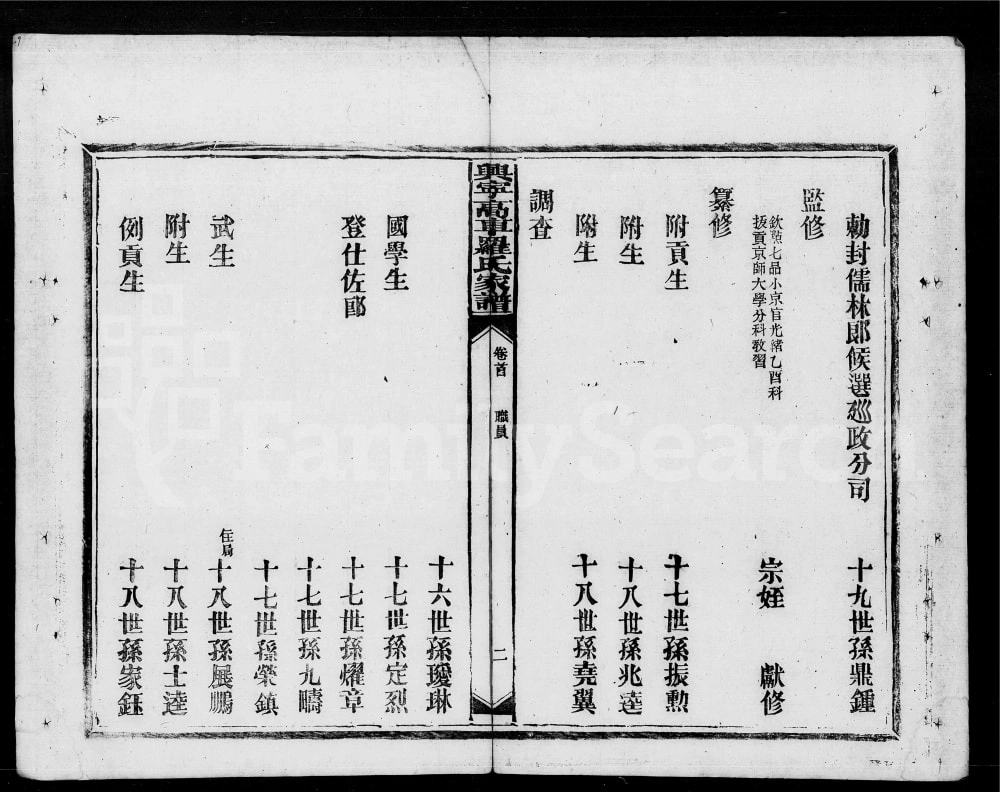 勅封儒林郎候選巡政分司 十九世孫鼎鍾
監修
欽點七品小京官光緒乙酉科
拔貢京師大學分科教習
宗姪 獻修
纂修
附貢生 十七世孫振勲
附生 十八世孫兆逵
附生 十八世孫堯翼
調查
興寧高車羅氏家譜 卷首 職員 二
十六世孫璦琳
國學生 十七世孫定烈
登仕佐郎 十七世孫耀章
十七世孫九疇
十七世孫榮鎮
武生 住局 十八世孫展鵬
附生 十八世孫士逵
例貢生 十八世孫家鈺
FamilySearch